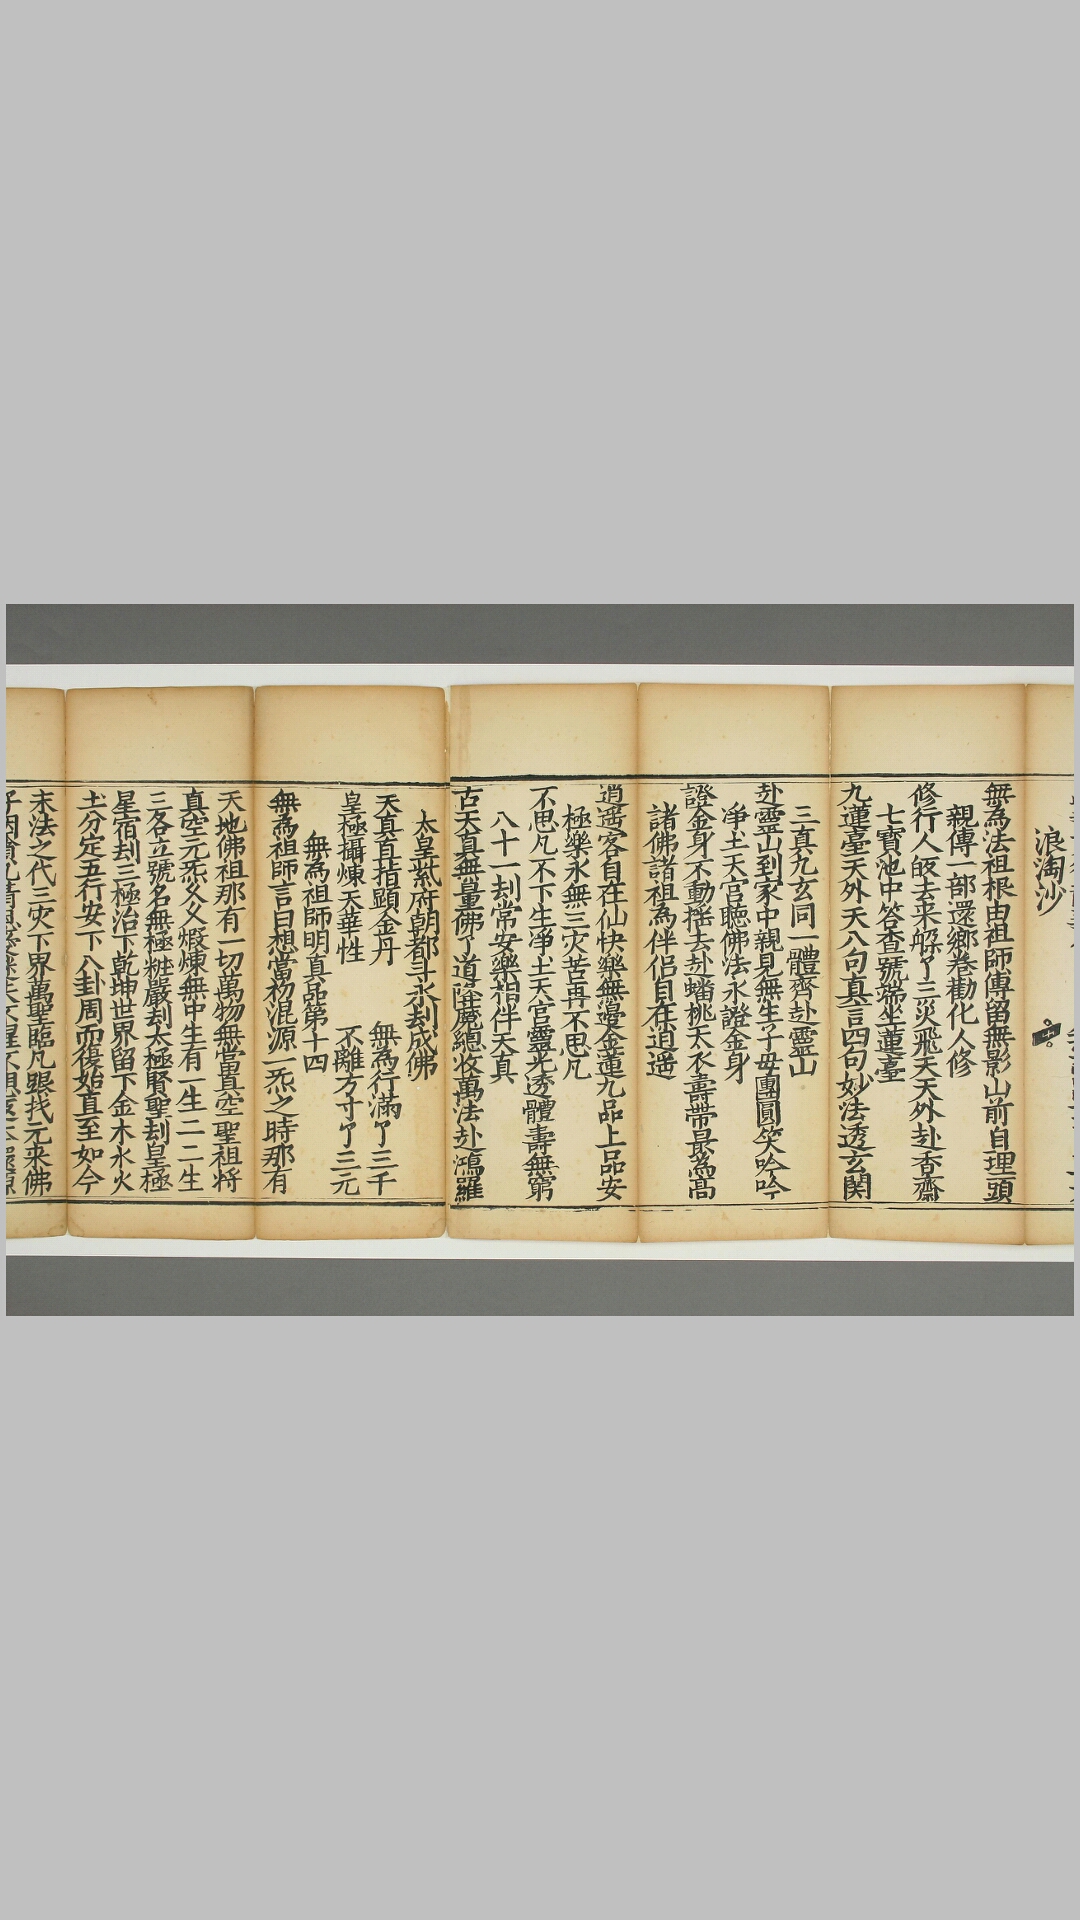 浪淘沙
無為法祖根由祖師傳留無影山前自理頭
親傳一部還鄉卷勸化人修
修行人皈去来躲了三災飛天天外赴香齋
七寶池中答查號端坐蓮臺
九蓮臺天外天八句真言四句妙法透玄関
三真九玄同一體齊赴靈山
赴靈山到家中親見無生子母團圓笑吟吟
净土天宫聴佛法永證金身
證金身不動揺去赴蟠桃天衣壽帶最為高
諸佛諸祖為伴侣自在逍遥
逍遥客自在仙快樂無邊金蓮九品上品安
極樂永無三灾苦再不思凡
不思凡不下生净土天宫靈光透體壽無窮
八十一刦常安樂相伴天真
古天真無量佛了道降魔總收萬法赴鴻羅
太皇紫府朝都斗永刦成佛
天真直指顕金丹 無為行滿了三千
皇極攝煉天華性 不離方寸了三元
無為祖師明真品第十四
無為祖師言曰想當初混源一炁之時那有
天地佛祖那有一切萬物無當真空聖祖将
真空元炁父煅煉無中生有一生二二生
三各立號名無極粧嚴刦太極賢聖刦皇極
星宿刦三極治下乾坤世界留下金木水火
土分定五行安下八卦周而復始直至如今
末法之代三灾下界萬聖臨凡跟找元来佛